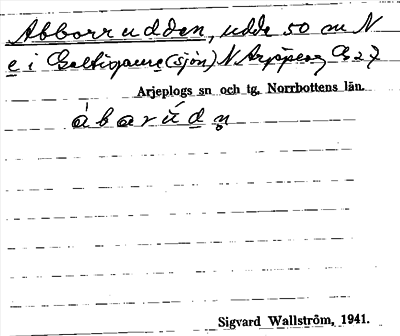 Abborrudden, udde 50 m N
e i (sjön) N Arjeplog
Arjeplogs sn och tg, Norrbottens län.
ábarúdn
Sigvard Wallström, 1941.